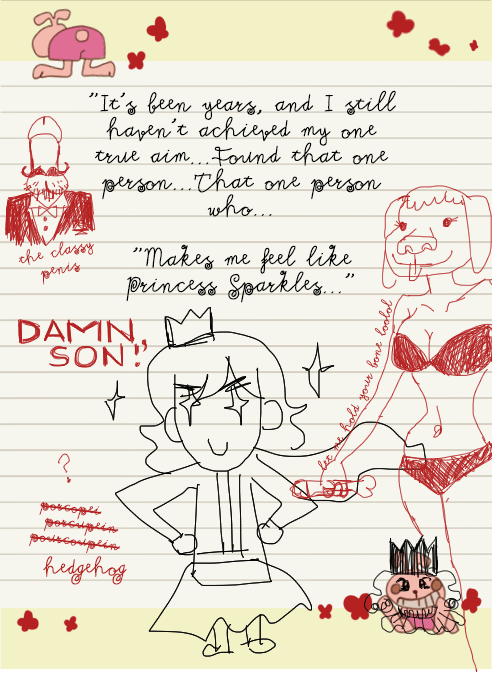 "It's been years, and I still
haven't achieved my one
true aim...Found that one
person...That one person
who...
"Makes me feel like
Princess Sparkles..."
the classy
penis
DAMN,
SON!"
let me hold your bone loolol
?
porcopei
porcupein
pourcoupein
hedgehog